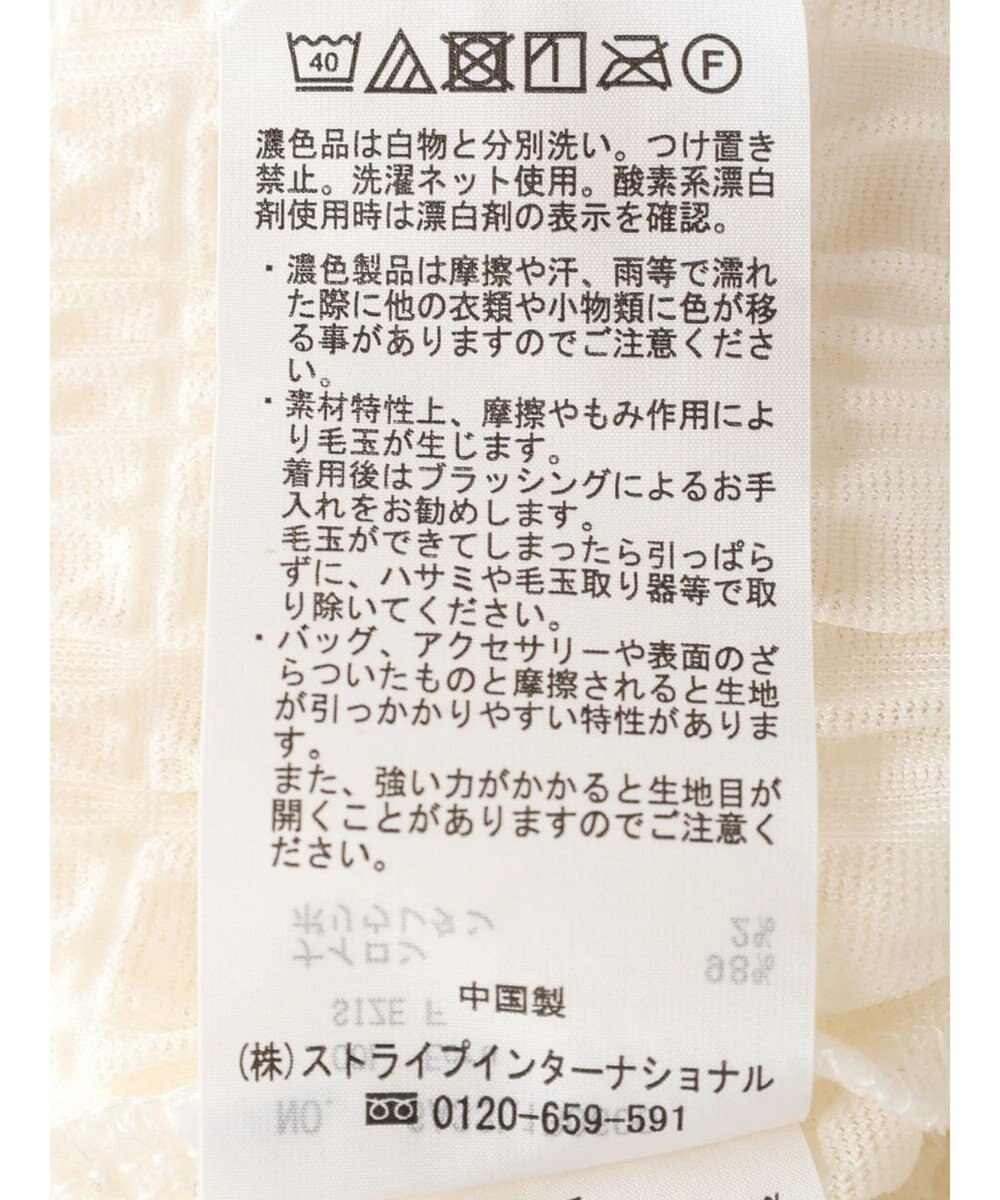 40 F
濃色品は白物と分別洗い。つけ置き
禁止。洗濯ネット使用。酸素系漂白
剤使用時は漂白剤の表示を確認。
・濃色製品は摩擦や汗、雨等で濡れ
た際に他の衣類や小物類に色が移
る事がありますのでご注意くださ
い。
・素材特性上、摩擦やもみ作用によ
り毛玉が生じます。
着用後はブラッシングによるお手
入れをお勧めします。
毛玉ができてしまったら引っぱら
ずに、ハサミや毛玉取り器等で取
り除いてください。
・バッグ、アクセサリーや表面のざ
らついたものと摩擦されると生地
が引っかかりやすい特性がありま
す。
また、強い力がかかると生地目が
開くことがありますのでご注意く
ださい。
ポリウレタン 2%
ナイロン 98%
中国製
SIZE F
(株)ストライプインターナショナル
NO.
0120-659-591